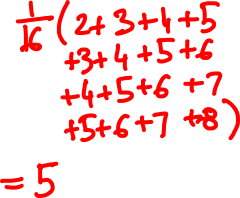 1/16 (2+3+4+5
+3+4+5+6
+4+5+6+7
+5+6+7+8)
=5